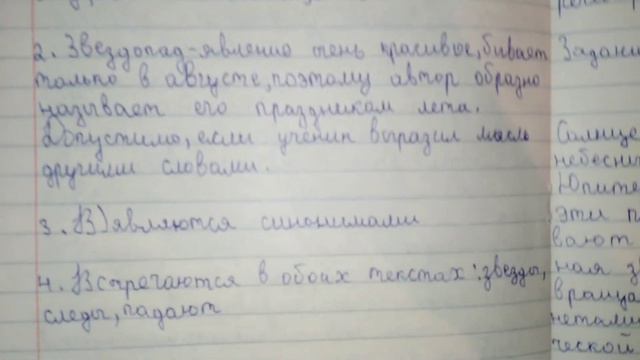 2. Звездопад-явление очень красивое, бывает
только в августе, поэтому автор образно
называет его праздником лета.
Допустимо, если ученик выразил мысль
другими словами.
3. В) являются синонимами
4. Встречаются в обоих текстах: звезды,
следы, падают
Задани
Солнце
небесны
Юпите
эти п
вают
ная з
враща
ческой